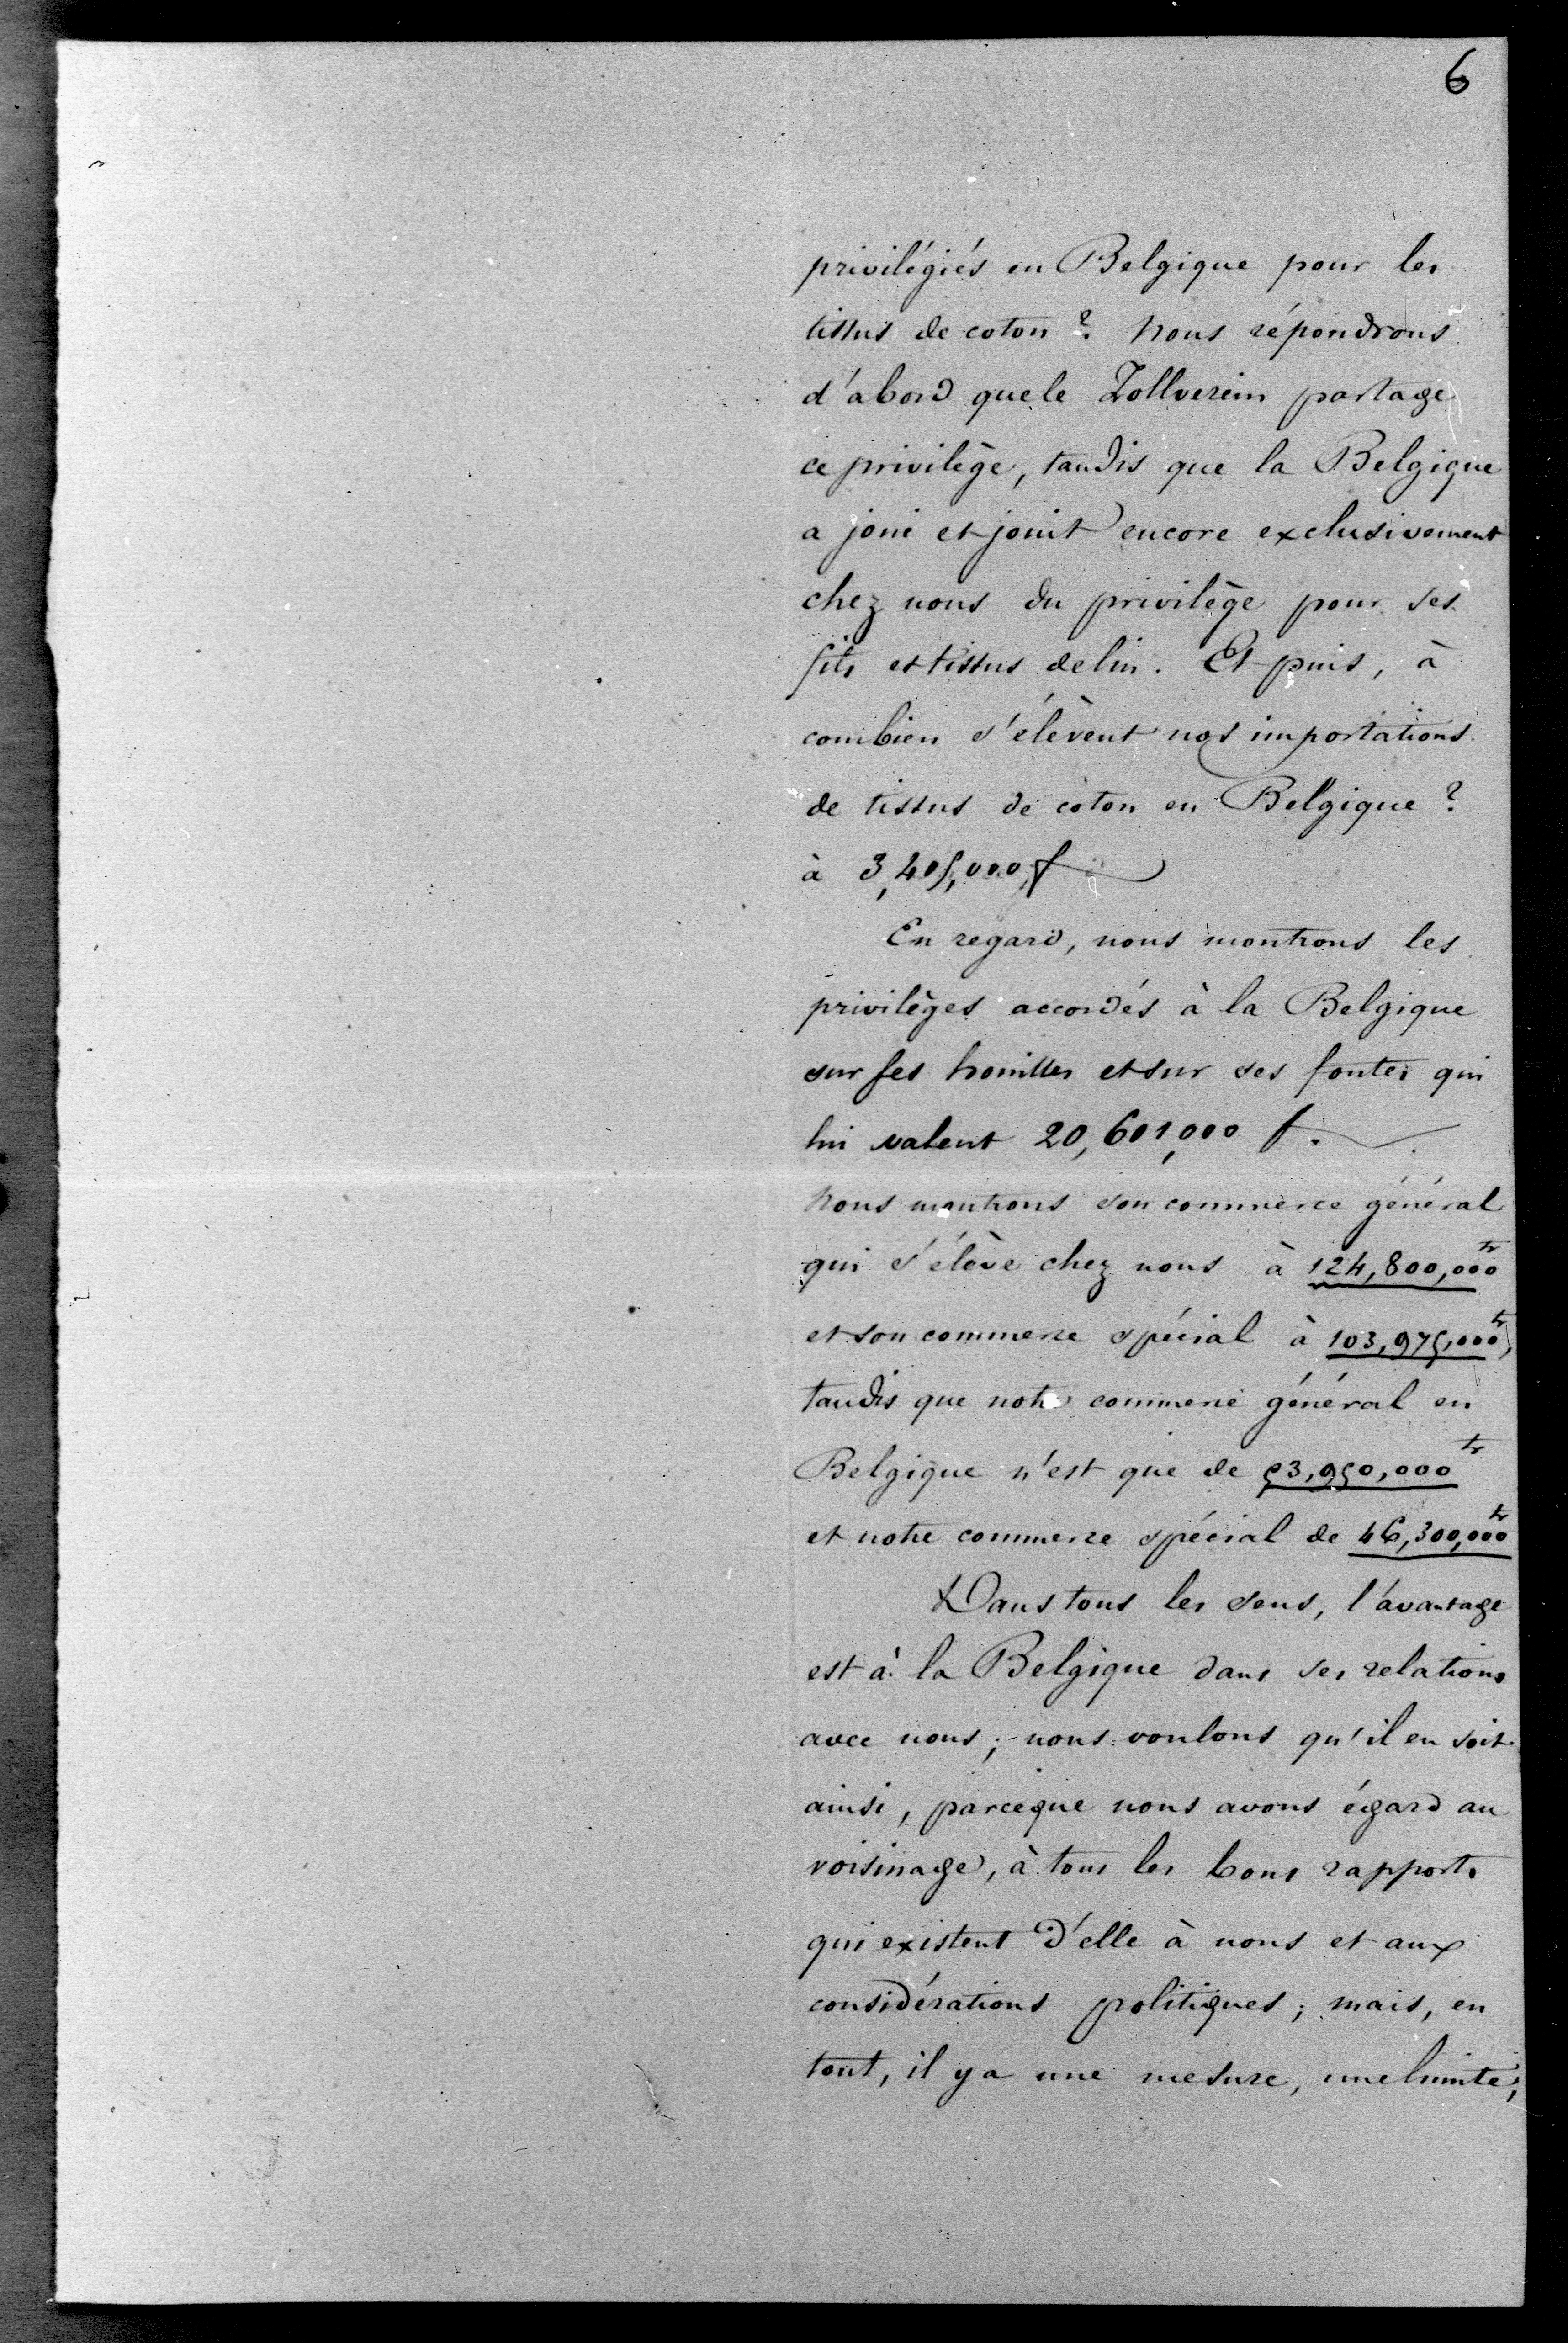 6
privilégiés en Belgique pour les
tissus de coton ? Nous répondrons
d'abord que le Zollverein partage
ce privilège, tandis que la Belgique
a joui et jouit encore exclusivement
chez nous du privilège pour ses
fils et tissus de lin. Et puis, à
combien s'élèvent nos importations
de tissus de coton en Belgique ?
à 3,405,000 f
En regard, nous montrons les
privilèges accordés à la Belgique
sur ses houilles et sur ses fontes qui
lui valent 20,601,000 f.
Nous montrons son commerce général
qui s'élève chez nous à 124,800,000 fr
et son commerce spécial à 103,975,000 fr,
tandis que notre commerce général en
Belgique n'est que de 53,950,000 fr
et notre commerce spécial de 46,300,000 fr
Dans tous les sens, l'avantage
est à la Belgique dans ses relations
avec nous ; nous voulons qu'il en soit
ainsi, parceque nous avons égard au
voisinage, à tous les bons rapports
qui existent d'elle à nous et aux
considérations politiques ; mais, en
tout, il y a une mesure, une limite ;